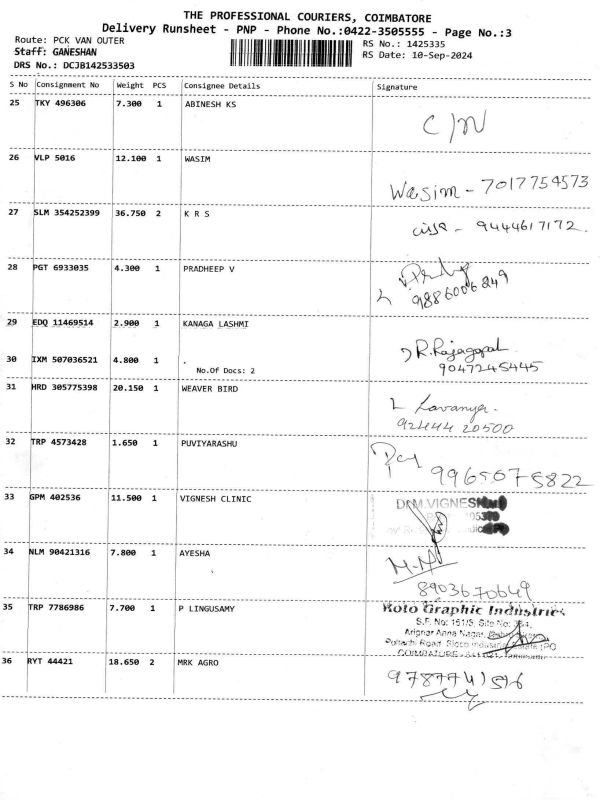 THE PROFESSIONAL COURIERS, COIMBATORE
Delivery Runsheet - PNP - Phone No.:0422-3505555 - Page No.:3
Route: PCK VAN OUTER
RS No.: 1425335
Staff: GANESHAN
RS Date: 10-Sep-2024
DRS No.: DCJB142533503
S No Consignment No Weight PCS Consignee Details Signature
25 TKY 496306 7.300 1 ABINESH KS
C/N
26 VLP 5016 12.100 1 WASIM
Wasim - 7017754573
27 SLM 354252399 36.750 2 K R S
9444617172.
28 PGT 6933035 4.300 1 PRADHEEP V
9886006249
29 EDQ 11469514 2.900 1 KANAGA LASHMI
30 IXM 507036521 4.800 1 .
No.Of Docs: 2
R.Rajagopal
9047245445
31 HRD 305775398 20.150 1 WEAVER BIRD
Lavanya.
92444 20500
32 TRP 4573428 1.650 1 PUVIYARASHU
9965075822
33 GPM 402536 11.500 1 VIGNESH CLINIC
Dr.M.VIGNESH
34 NLM 90421316 7.800 1 AYESHA
8903670649
35 TRP 7786986 7.700 1 P LINGUSAMY
Roto Graphic Industries
S.F. No: 161/5, Site No:
Arignar Anna Nagar,
Pollachi Road,
COIMBATORE - 641 021.
36 RYT 44421 18.650 2 MRK AGRO
9787741516